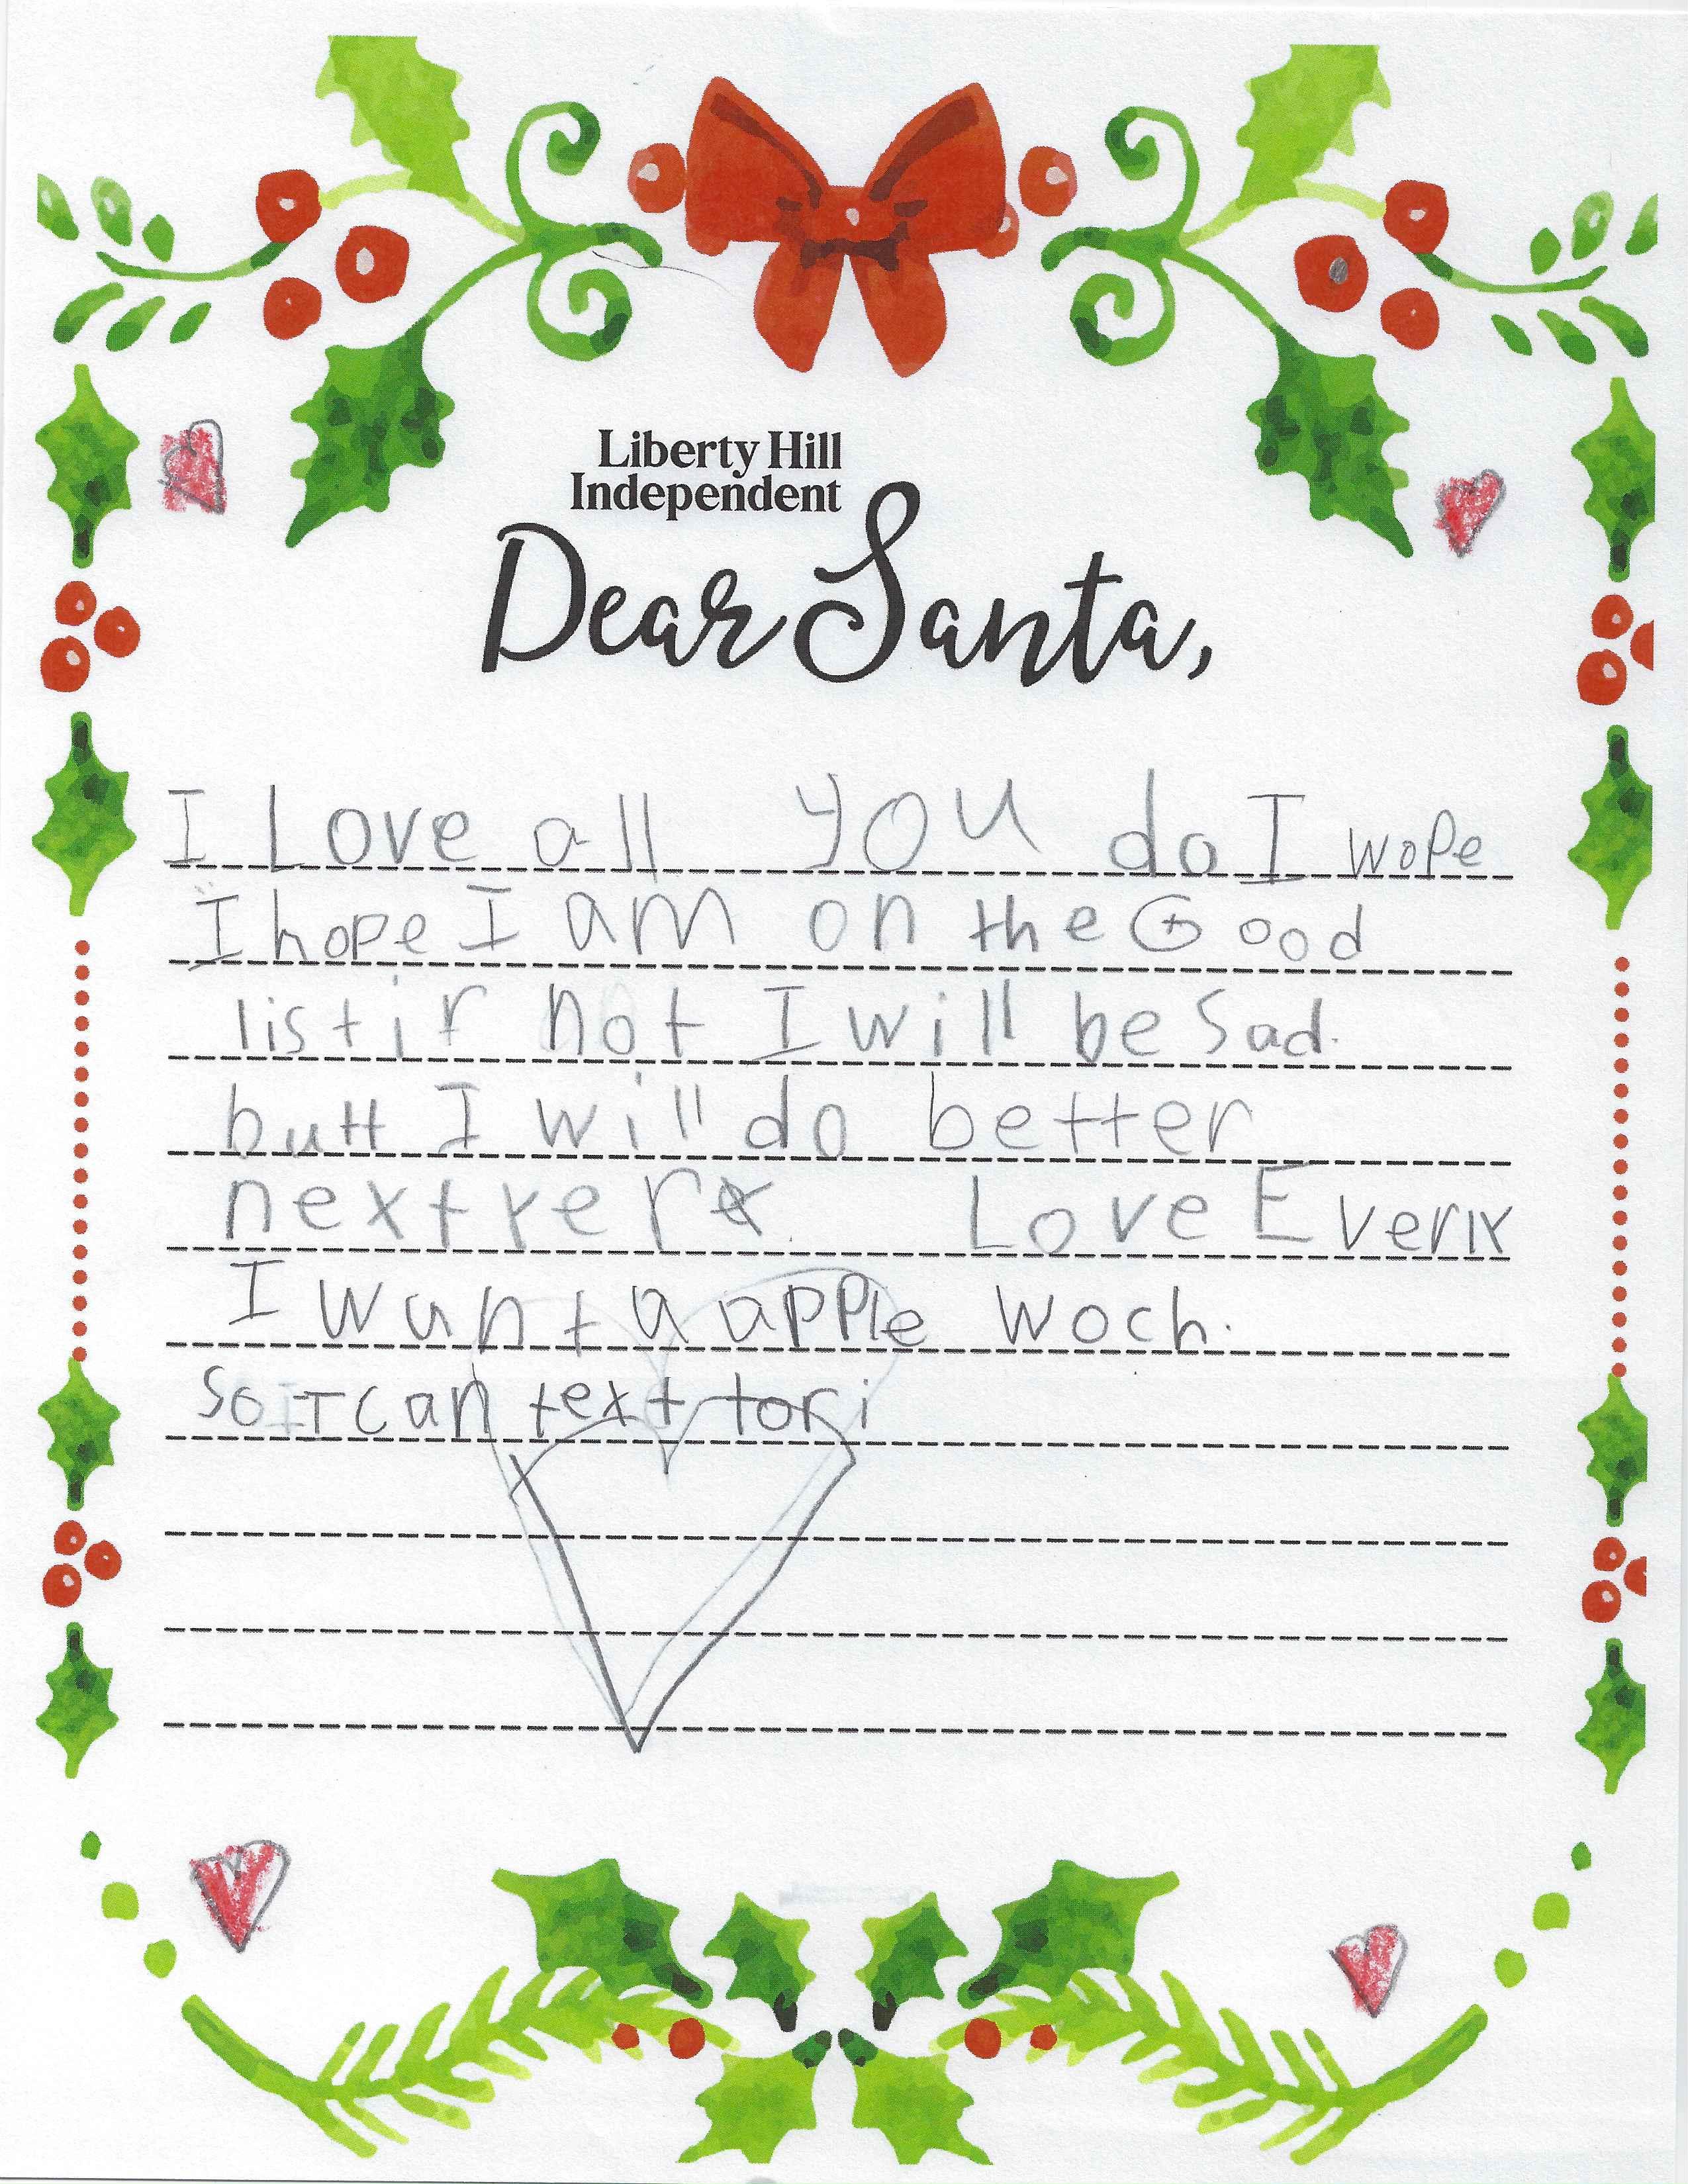 Liberty Hill
Independent
Dear Santa,
I Love all you do I wope
I hope I am on the Good
list if not I will be Sad.
butt I will do better
next yer Love Everly
I wunt a apple woch.
So I can text tori